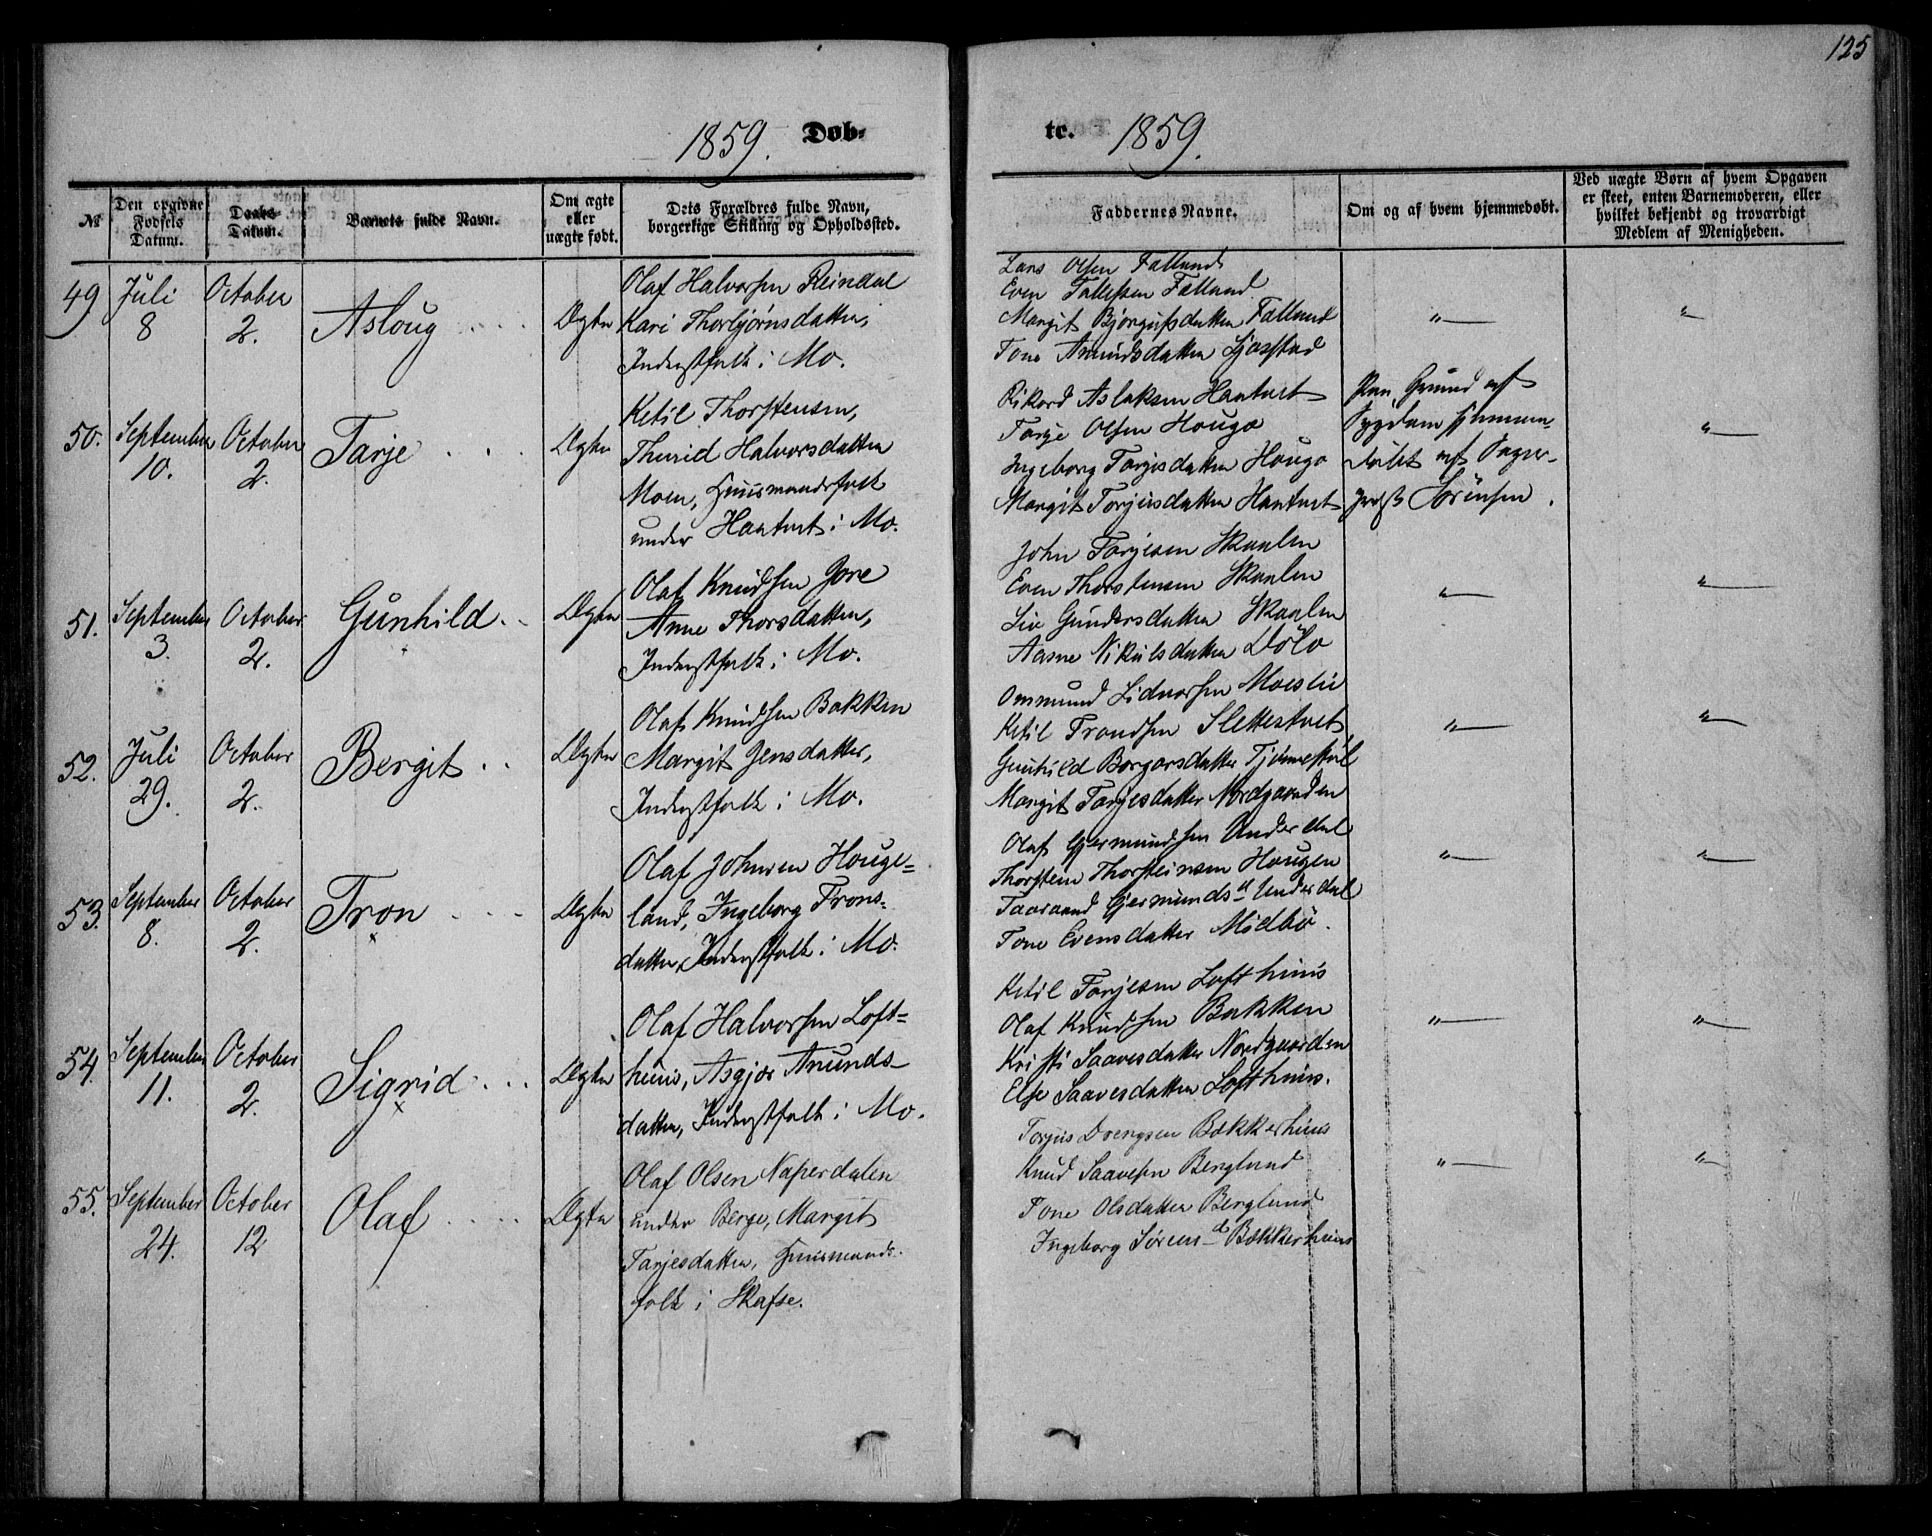 125
1859. Døb-
te. 1859.
№
Den opgivne Fødsels Datum.
Daabs-Datum.
Barnets fulde Navn.
Om ægte eller uægte født.
Dets Forældres fulde Navn, borgerlige Stilling og Opholdssted.
Faddernes Navne.
Om og af hvem hjemmedøbt.
Ved uægte Børn af hvem Opgaven er skeet, enten Barnemoderen, eller hvilket bekjendt og troværdigt Medlem af Menigheden.
49 Juli 8 October 2. Asloug Ægte
Olaf Halvorsen Reindal
Kari Thorbjørnsdatter,
Inderstfolk i Mo.
Lars Olsen Falland
Even Tallefsen Falland
Margit Bjørgufsdatter Falland
Tone Amundsdatter
50. September 10. October 2. Tarje Ægte
Ketil Thorstensen,
Thurid Halvorsdatter
Moen, Huusmandsfolk
under Hantvet i Mo.
Rikard Aslaksen Hantvet
Tarje Olsen Hougo
Ingeborg Tarjesdatter Hougo
Margit Torjusdatter Hantvet
Paa Grund af
Sygdom hjemme-
døbt af
Sörensen.
51. September 3. October 2. Gunhild Ægte
Olaf Knudsen Jore
Anne Thorsdatter,
Inderstfolk i Mo.
John Tarjesen Skaalen
Even Thorstensen Skaalen
Liv Gundersdatter Skaalen
Aasne Nikulsdatter Dölo
52. Juli 29. October 2. Bergit Ægte
Olaf Knudsen Bakken
Margit Jensdatter,
Inderstfolk i Mo.
Ommund Lidvorsen Moeslie
Ketil Trondsen Slettestvet
Gunhild Borgarsdatter
Margit Tarjesdatter Nordgaarden
53. September 8. October 2. Tron Ægte
Olaf Johnsen Houge-
land, Ingeborg Trons-
datter, Inderstfolk i Mo.
Olaf Gjermundsen Underdal
Thorstein Thorsteinsen Hougen
Taaraand Gjermundsd. Underdal
Tone Evensdatter Midbö.
54. September 11. October 2. Sigrid Ægte
Olaf Halvorsen Loft-
huus, Asgjær Anunds-
datter, Inderstfolk i Mo.
Ketil Tarjesen Lofthuus
Olaf Knudsen Bakken
Kristi Saavesdatter Nordgaarden
Else Saavesdatter Lofthuus.
55. September 24. October 12 Olaf Ægte
Olaf Olsen Naperdalen
under Berge, Margit
Tarjesdatter, Huusmands-
folk i Skafse.
Torjus Drengsen Bækkerhuus
Knud Saavesen Berglund
Tone Olsdatter Berglund
Ingeborg Sørensd. Bækkerhuus